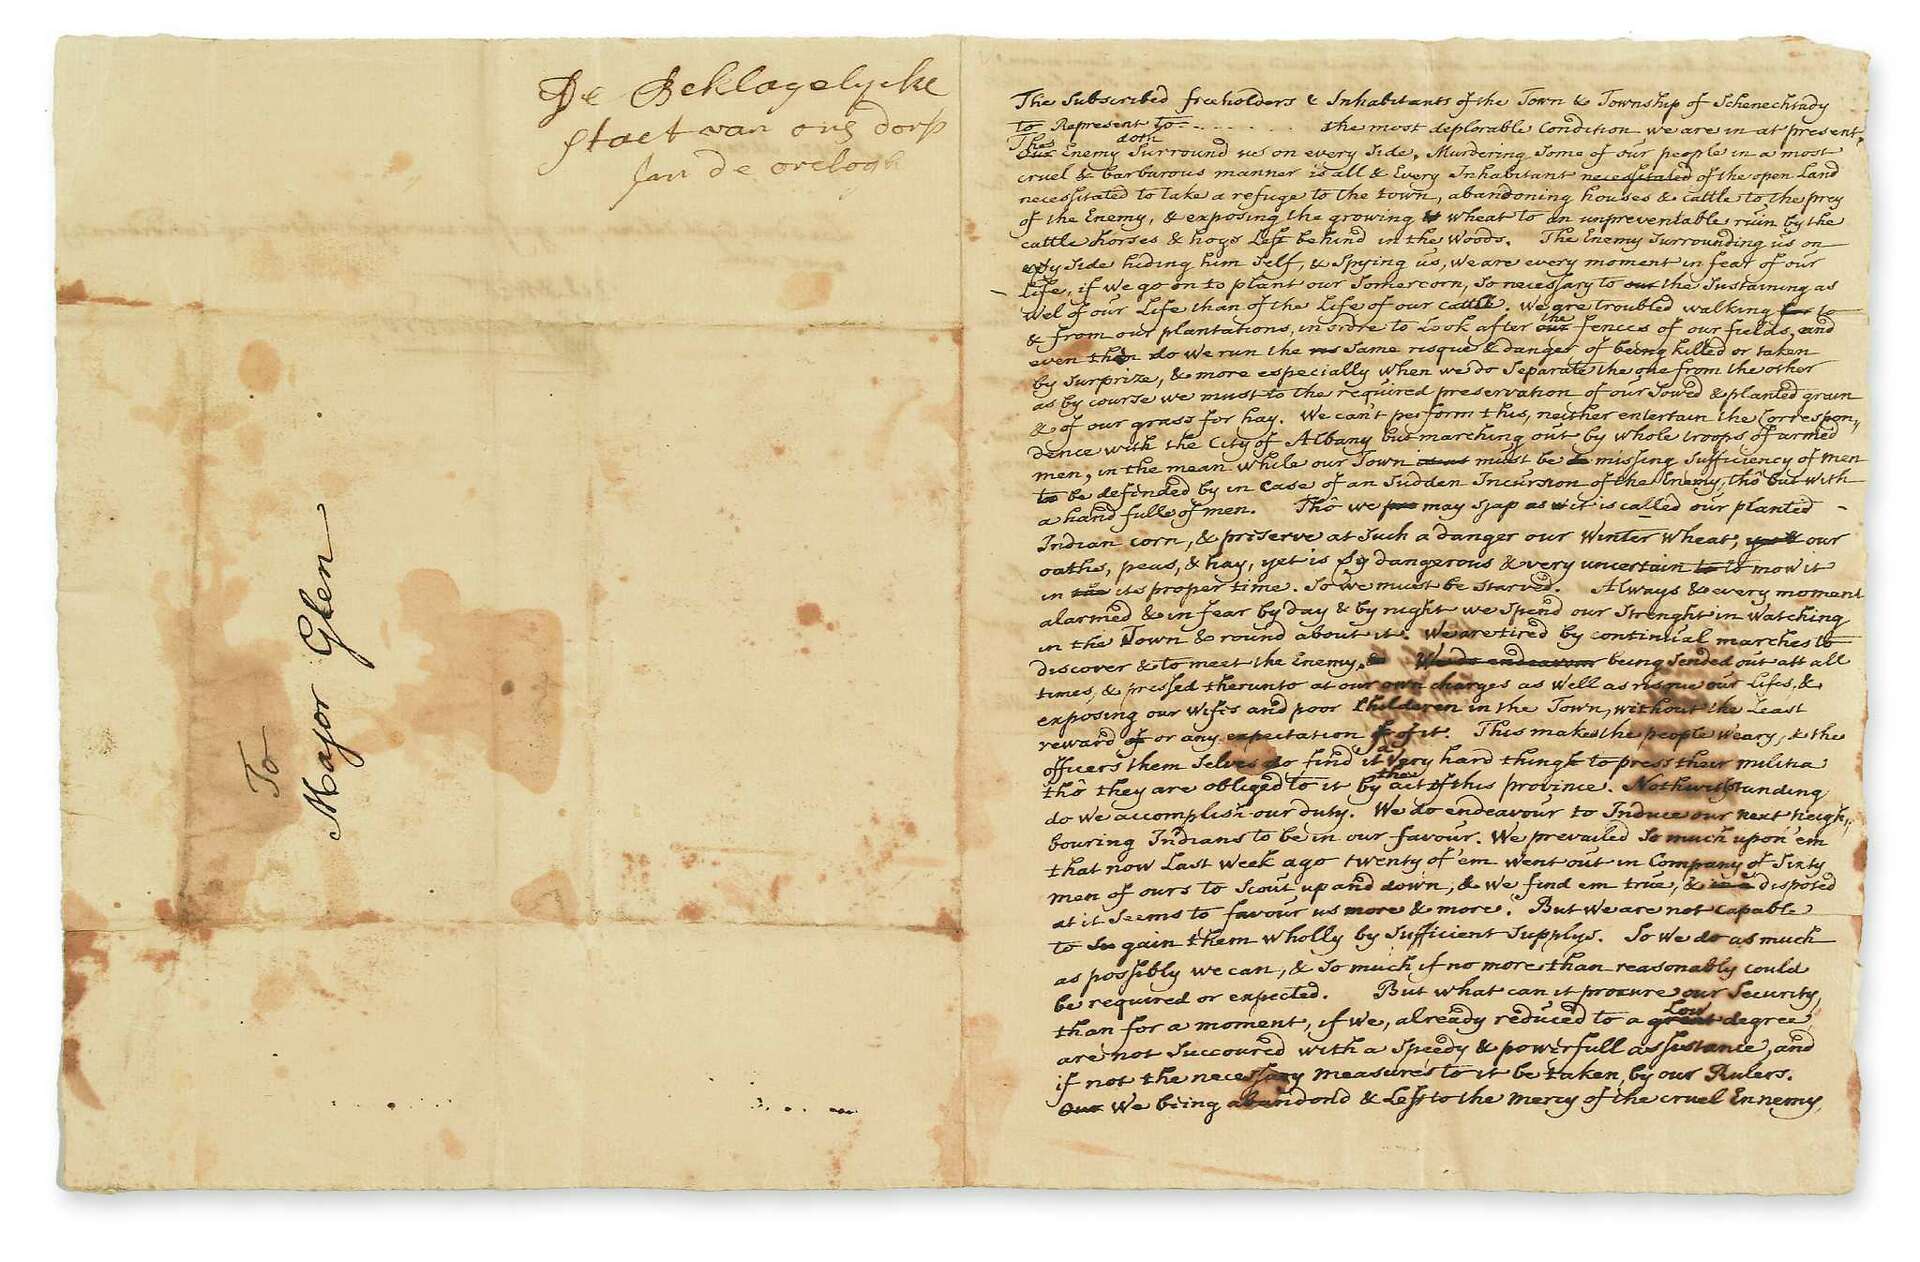 De Beklagelycke
staet van ons dorp
Jan de orelogh
To
Major Glen
The Subscribed freeholders & Inhabitants of the Town & Township of Schenechtady
to Represent to - . . . . . . . the most deplorable Condition we are in at present,
Thas Our Enemy doth Surround us on every Side. Murdering Some of our people in a most
cruel & barbarous manner is all & Every Inhabitant necessitated of the open Land
necessitated to take a refuge to the town, abandoning houses & cattle to the prey
of the Enemy, & exposing the growing wheat to an unpreventable ruin by the
cattle horses & hogs Left behind in the Woods. The Enemy Surrounding us on
evry Side hiding him Self, & Spying us, we are every moment in fear of our
Life, if we go on to plant our Somercorn, So necessary to our the Sustaining as
wel of our Life than of the Life of our cattle. We are troubled walking to
& from our plantations, in ordre to Look after our the fences of our fields, and
even then do we run the same risque & danger of being killed or taken
by Surprize, & more especially when we do Separate the one from the other
as by course we must to the required preservation of our Sowed & planted grain
& of our grass for hay. We can't perform this, neither entertain the Correspon,,
dence with the City of Albany but marching out by whole troops of armed
men, in the mean while our Town must be missing Sufficiency of men
to be definded by in case of an Sudden Incursion of the Enemy, thô but with
a hand fulle of men. Thô we may sjap as wit is called our planted
Indian corn, & preserve at Such a danger our Winter Wheat, our
oaths, peas, & hay, yet is So dangerous & very uncertain to mow it
in its proper time. So we must be starved. Always & every moment
alarmed & in fear by day & by night we Spend our Strenght in Watching
in the Town & round about it. We are tired by continual marches to
discover & to meet the Enemy. & We do endeavour being Sended out att all
times, & pressed therunto at our own charges as well as risque our Lifes, &
exposing our Wifes and poor Childeren in the Town, without the Least
reward of or any expectation of it. This makes the people weary, & the
officers them Selves do find it a very hard thing to press their militia
thô they are obliged to it by the act of this province. Nothwithstanding
do we accomplish our duty. We do endeavour to Induce our next neigh,,
bouring Indians to be in our favour. We prevailed So much upon 'em
that now Last week ago twenty of 'em went out in Company of Sixty
men of ours to Scout up and down, & we find em true, & disposed
at it Seems to favour us more & more. But we are not capable
to gain them wholly by Sufficient Supplys. So we do as much
as possibly we can, & So much if no more than reasonably could
be required or expected. But what can it procure our Security,
than for a moment, if we, already reduced to a great Low degree,
are not Succoured with a Speedy & powerfull assistance, and
if not the necessary measures to it be taken, by our Rulers.
Our We being abandond & Left to the Mercy of the cruel Ennemy,